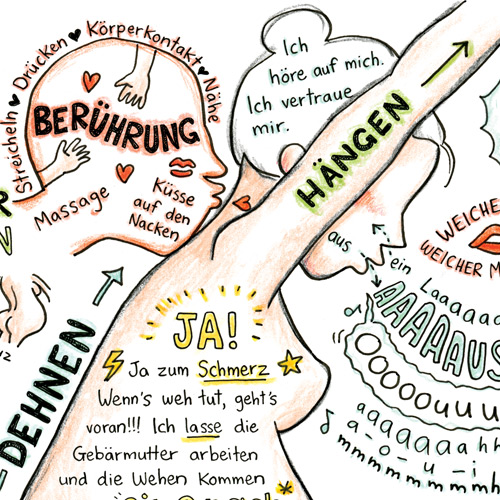 Streicheln ♥ Drücken ♥ Körperkontakt ♥ Nähe
BERÜHRUNG
Massage
Küsse
auf den
Nacken
Ich
höre auf mich.
Ich vertraue
mir.
HÄNGEN
DEHNEN
JA!
Ja zum Schmerz
Wenn's weh tut, geht's
voran!!! Ich lasse die
Gebärmutter arbeiten
und die Wehen kommen
aus
ein
WEICHER M
Laaaaa
AAAAAUS
Ooooouuu
aaaaaaahh
a-o-u-i